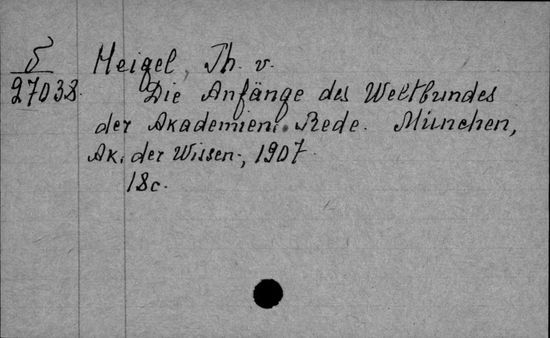 5 Heigel, Th. v.
27038. Die Anfänge des Weltbundes
der Akademien. Rede. München,
Ak. der Wissen-, 1907.
18c.